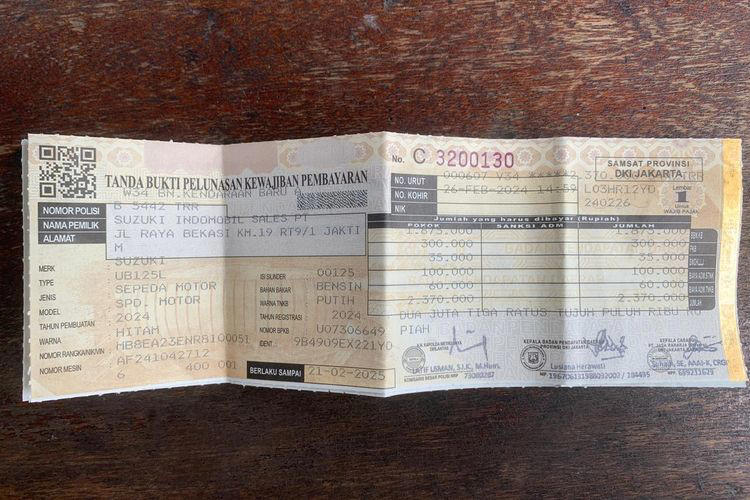 TANDA BUKTI PELUNASAN KEWAJIBAN PEMBAYARAN
W34 BN.KENDARAAN BARU A
NOMOR POLISI B 5442 TRR
NAMA PEMILIK SUZUKI INDOMOBIL SALES PT
ALAMAT JL RAYA BEKASI KM.19 RT9/1 JAKTI
M
MERK SUZUKI
TYPE UB125L
JENIS SEPEDA MOTOR
MODEL SPD. MOTOR
TAHUN PEMBUATAN 2024
WARNA HITAM
NOMOR RANGKA/NIK/VIN MB8EA23ENR8100051
NOMOR MESIN AF241042712
6 400 001
ISI SILINDER 00125
BAHAN BAKAR BENSIN
WARNA TNKB PUTIH
TAHUN REGISTRASI 2024
NOMOR BPKB U07306649
IDENT 9B4909EX221YD
BERLAKU SAMPAI 21-02-2025
No. C 3200130
SAMSAT PROVINSI
DKI JAKARTA
NO. URUT 000607 Y34 ******2.370.000
NO. KOHIR 26-FEB-2024 14:59 L03HR12YD
NIK 240226
Lembar
1
Untuk
WAJIB PAJAK
Jumlah yang harus dibayar (Rupiah)
POKOK SANKSI ADM JUMLAH
1.875.000 1.875.000 BBN KB
300.000 300.000 PKB
35.000 35.000 SWDKLLJ
100.000 100.000 BIAYA ADM.STNK
60.000 60.000 BIAYA ADM.TNKB
2.370.000 2.370.000 JUMLAH
DUA JUTA TIGA RATUS TUJUH PULUH RIBU RU
PIAH
DIRLANTAS
LATIF USMAN, S.I.K., M.Hum.
KOMISARIS BESAR POLISI NRP 73080287
KEPALA BADAN PENDAPATAN DAERAH
PROVINSI DKI JAKARTA
Lusiana Herawati
KEPALA CABANG
PT. JASA RAHARJA